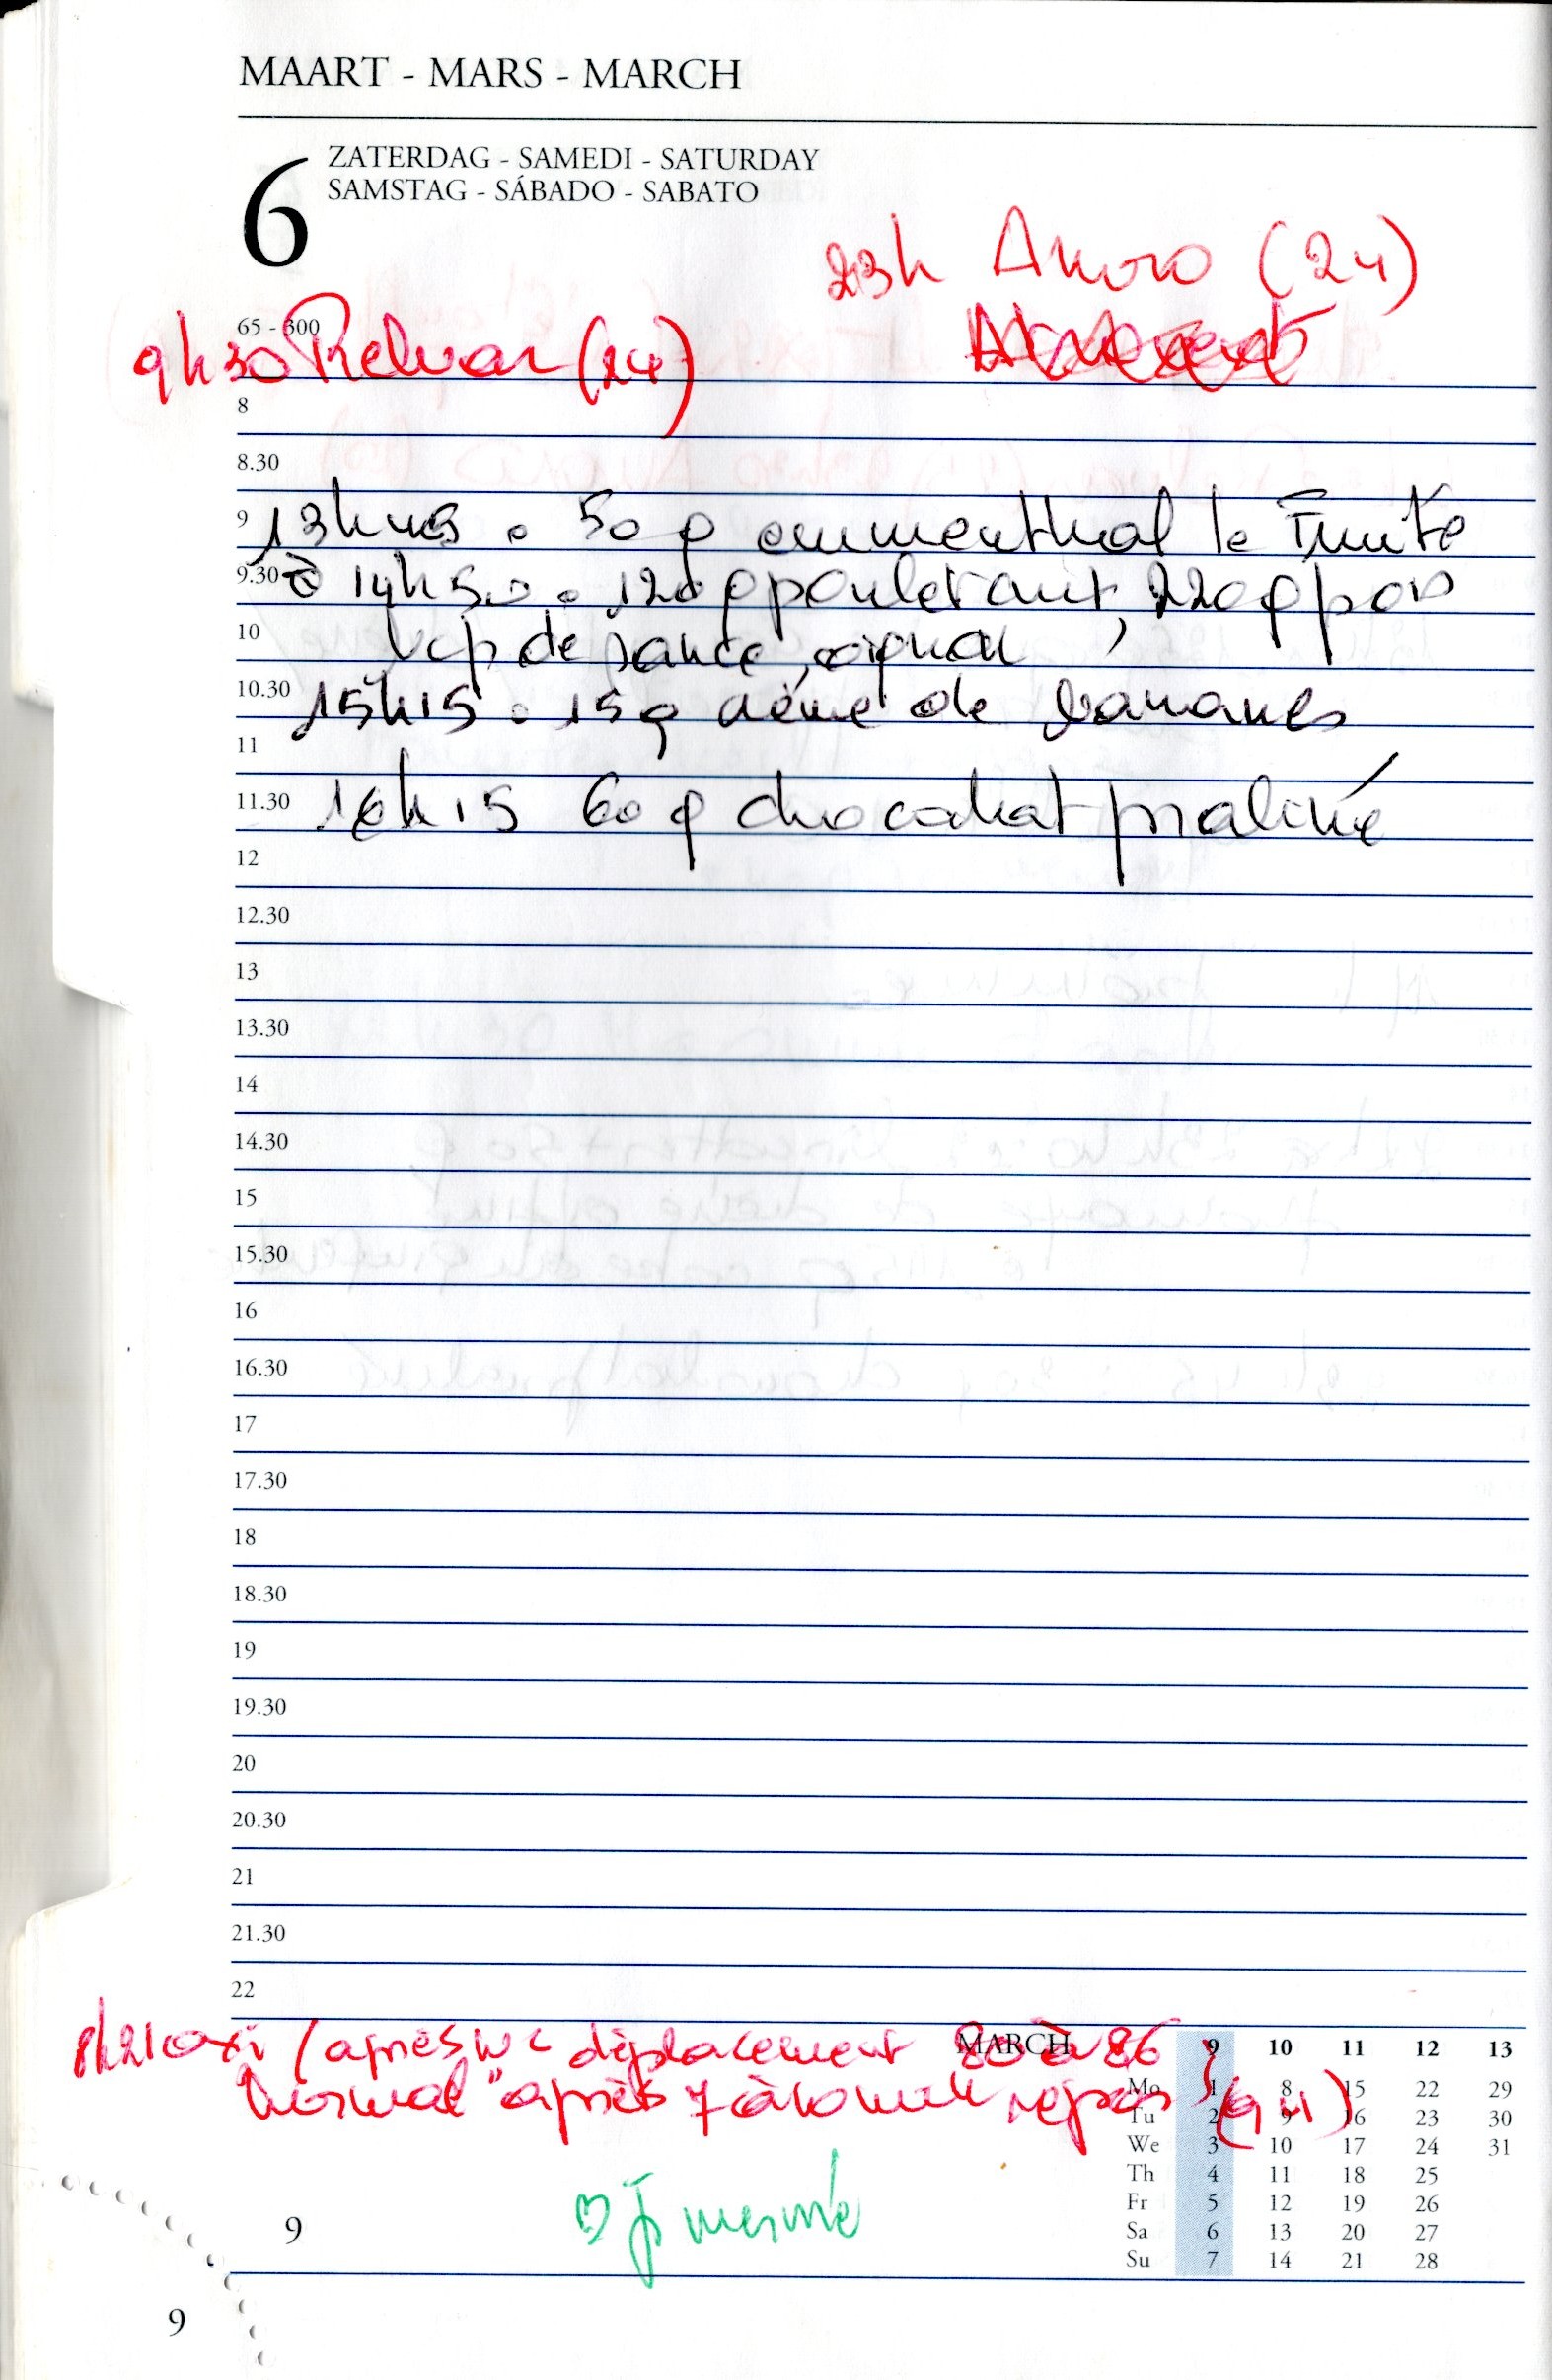 MAART - MARS - MARCH
6
ZATERDAG - SAMEDI - SATURDAY
SAMSTAG - SÁBADO - SABATO
23h (24)
65 - 300
9h30 (24)
8
8.30
9
13h45 : 50 g emmenthal le
9.30
à 14h50 : 120 g poulet cuit, 220 g
10
1 cp de sauce,
10.30
15h15 : 15 g crème de bananes
11
11.30
16h15 60 g chocolat praliné
12
12.30
13
13.30
14
14.30
15
15.30
16
16.30
17
17.30
18
18.30
19
19.30
20
20.30
21
21.30
22
(après wc déplacement 80 à 86
normal après 7 à 10 repos (94)
MARCH 9 10 11 12 13
Mo 1 8 15 22 29
Tu 2 9 16 23 30
We 3 10 17 24 31
Th 4 11 18 25
Fr 5 12 19 26
Sa 6 13 20 27
Su 7 14 21 28
9
9